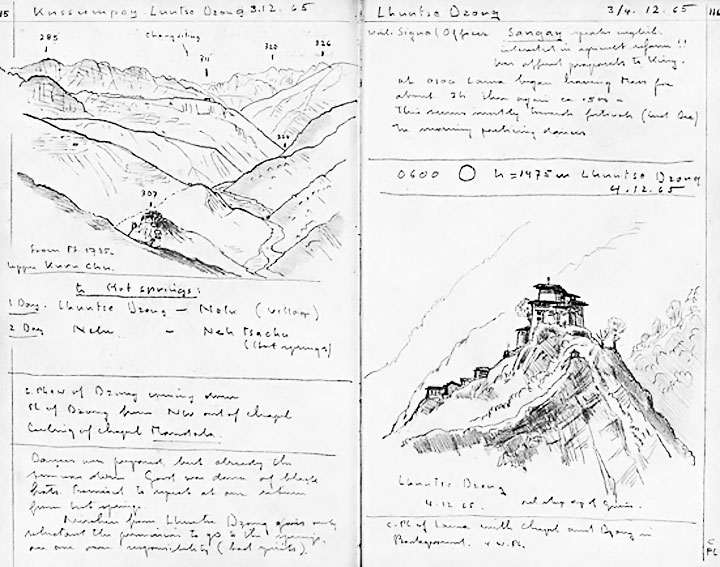 15 Kussumpay Luntse Dzong 3.12.65
Changsiling
285
311
320
326
324
307
From Pt 1735
Upper Kuru Chu.
to Hot springs:
1 Day. Lhuntse Dzong – Nelu (village)
2 Day Nelu – Neh tsachu
(Hot springs)
c. Ph of Dzong coming down
Pl of Dzong from NW out of chapel
Ceiling of chapel Mandala.
Dances were prepared but already the
sun was down. Good was dance of black
hats. Promised to repeat at our return
from hot springs.
from Lhuntse Dzong gives only
reluctant the permission to go to the springs
on our own responsibility (bad spirits).
Lhuntse Dzong 3/4.12.65 116
Wil. Signal Officer Sangay speaks english.
interested in !!
proposals to King.
at 0200 Lama began Mass for
about 2h then again ca
This seems mostly towards festivals
The morning practicing dances
0600 h = 1475 m Lhuntse Dzong
4.12.65
Lhuntse Dzong
4.12.65.
c. Pl of Lama with chapel and Dzong in
Background. 4 w. Ph.
C
PL